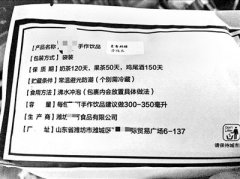 【产品名称】手作饮品
【包装方式】袋装
【保 质 期】奶茶120天、果茶50天、鸡尾酒150天
【贮藏条件】常温避光防潮（个别需冷藏）
【食用方法】沸水冲泡（包裹内会放置具体做法）
【容 量】每 手作饮品建议做300-350毫升
【生 产 商】潍坊 食品有限公司
【厂 址】山东省潍坊市潍城区 际贸易广场6-137
请保持城市